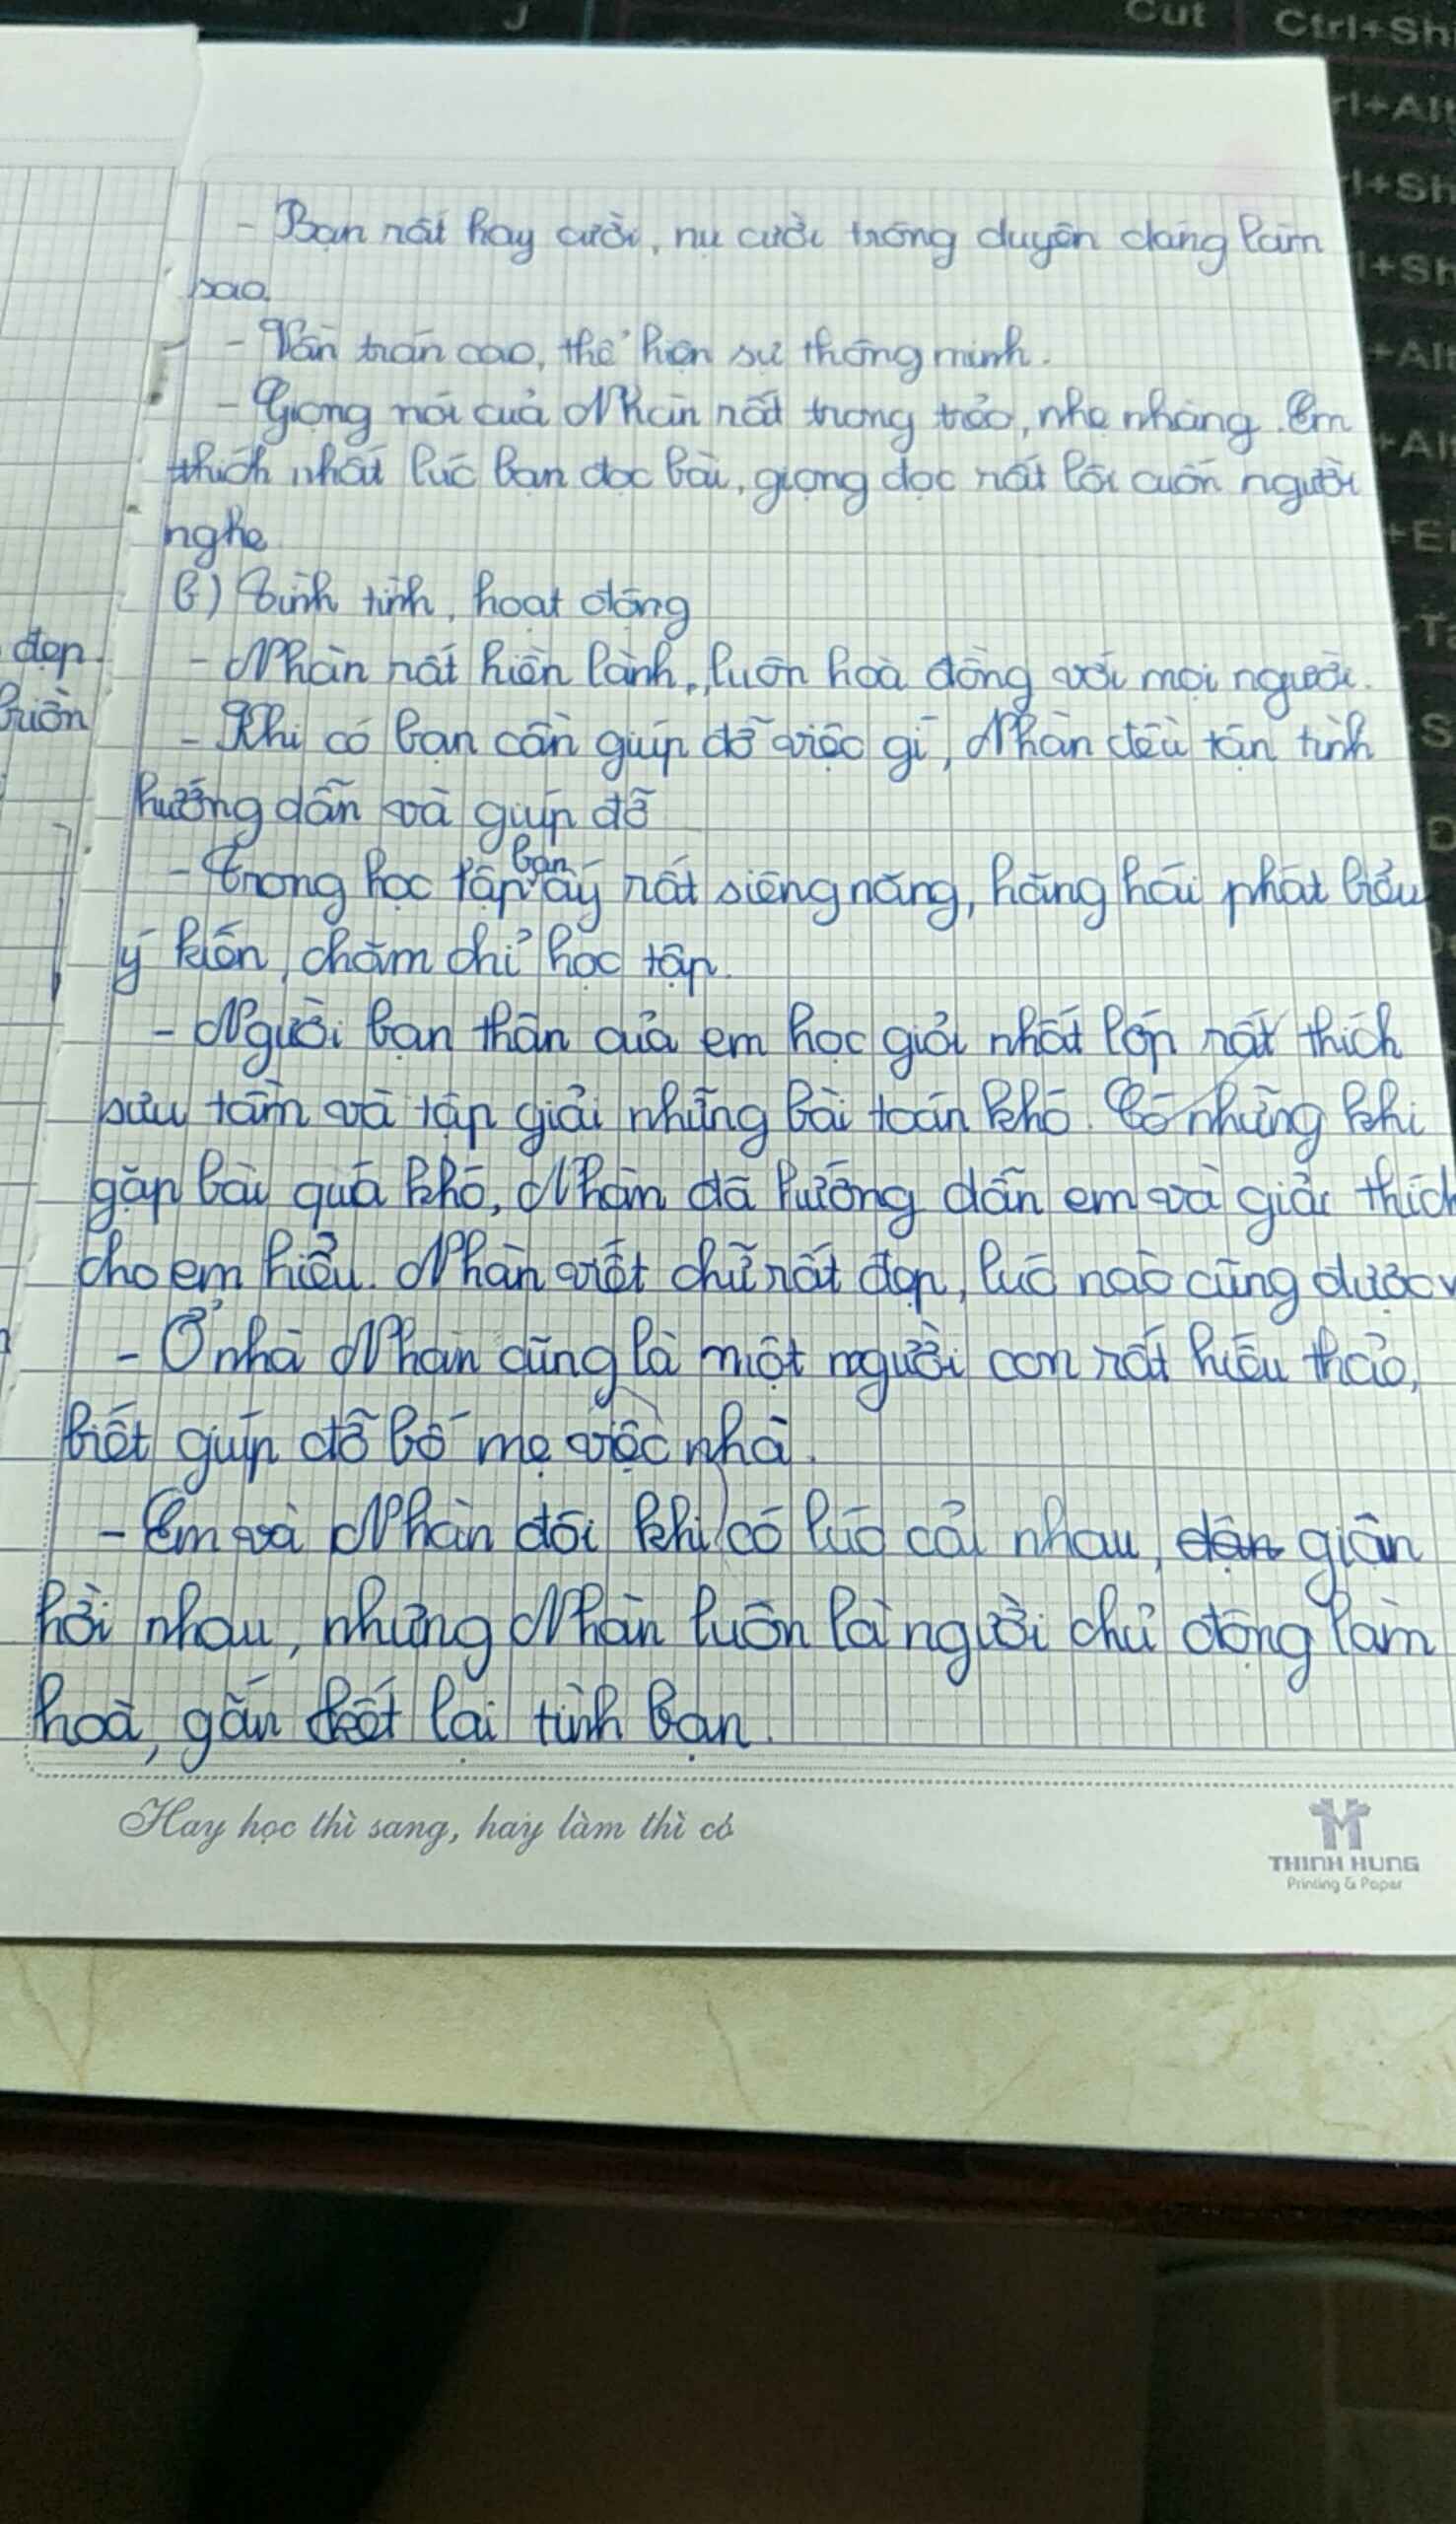 J
Cut
Ctrl+Sh
rl+Alt
l+Sh
l+Sh
+Alt
+Alt
- Bạn rất hay cười, nụ cười trông duyên dáng làm
sao.
- Vần trán cao, thể hiện sự thông minh.
- Giọng nói của Nhàn rất trong trẻo, nhẹ nhàng. Em
thích nhất lúc bạn đọc bài, giọng đọc rất lôi cuốn người
nghe
b) Tính tình, hoạt động
đẹp.
- Nhàn rất hiền lành, luôn hoà đồng với mọi người.
- Khi có bạn cần giúp đỡ việc gì, Nhàn đều tận tình
hướng dẫn và giúp đỡ
- Trong học tập bạn ấy rất siêng năng, hăng hái phát biểu
ý kiến, chăm chỉ học tập.
- Người bạn thân của em học giỏi nhất lớp rất thích
sưu tầm và tập giải những bài toán khó. Có những khi
gặp bài quá khó, Nhàn đã hướng dẫn em và giải thích
cho em hiểu. Nhàn viết chữ rất đẹp, lúc nào cũng được
- Ở nhà Nhàn cũng là một người con rất hiếu thảo,
biết giúp đỡ bố mẹ việc nhà.
- Em và Nhàn đôi khi có lúc cải nhau, giận
hời nhau, nhưng Nhàn luôn là người chủ động làm
hoà, gắn kết lại tình bạn.
Hay học thì sang, hay làm thì có
THINH HUNG
Printing & Paper